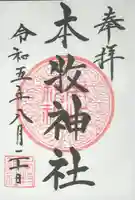 奉拝
本牧神社
令和五年八月二日